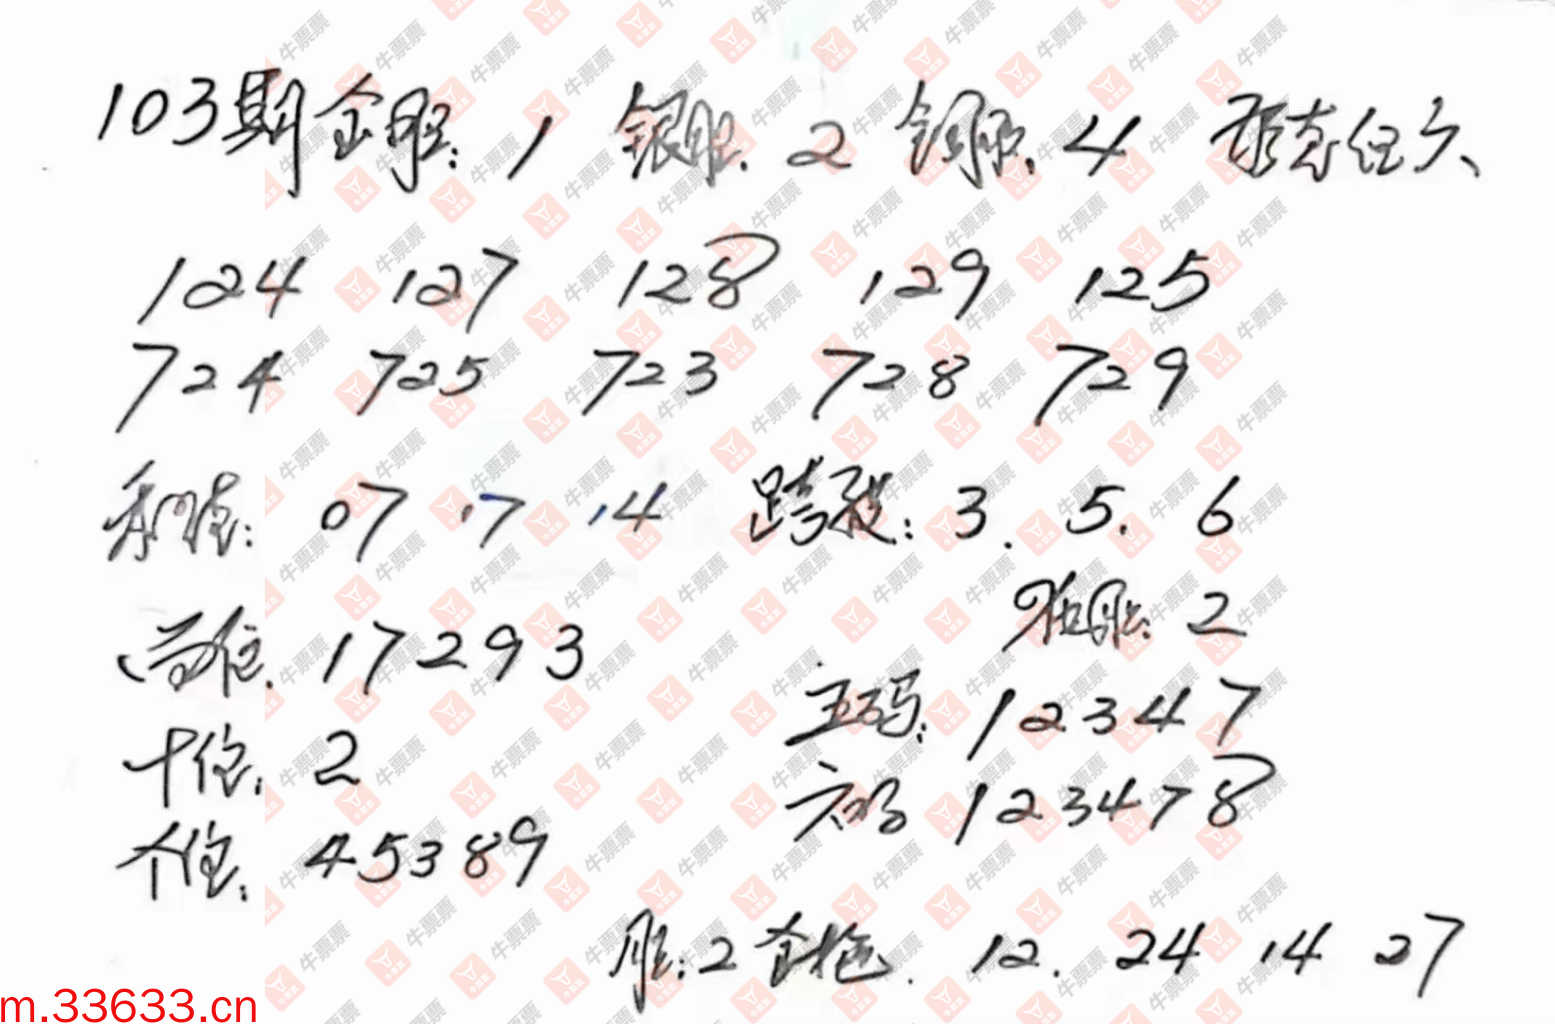 103期金胆: 1 银胆. 2 铜胆. 4 形态组六
124 127 128 129 125
724 725 723 728 729
和值: 07 17 14 跨度: 3. 5. 6
独胆: 2
百位. 17293
五码: 12347
十位: 2
六码 123478
个位: 45389
胆: 2 金拖. 12. 24 14 27
m.33633.cn
牛票票